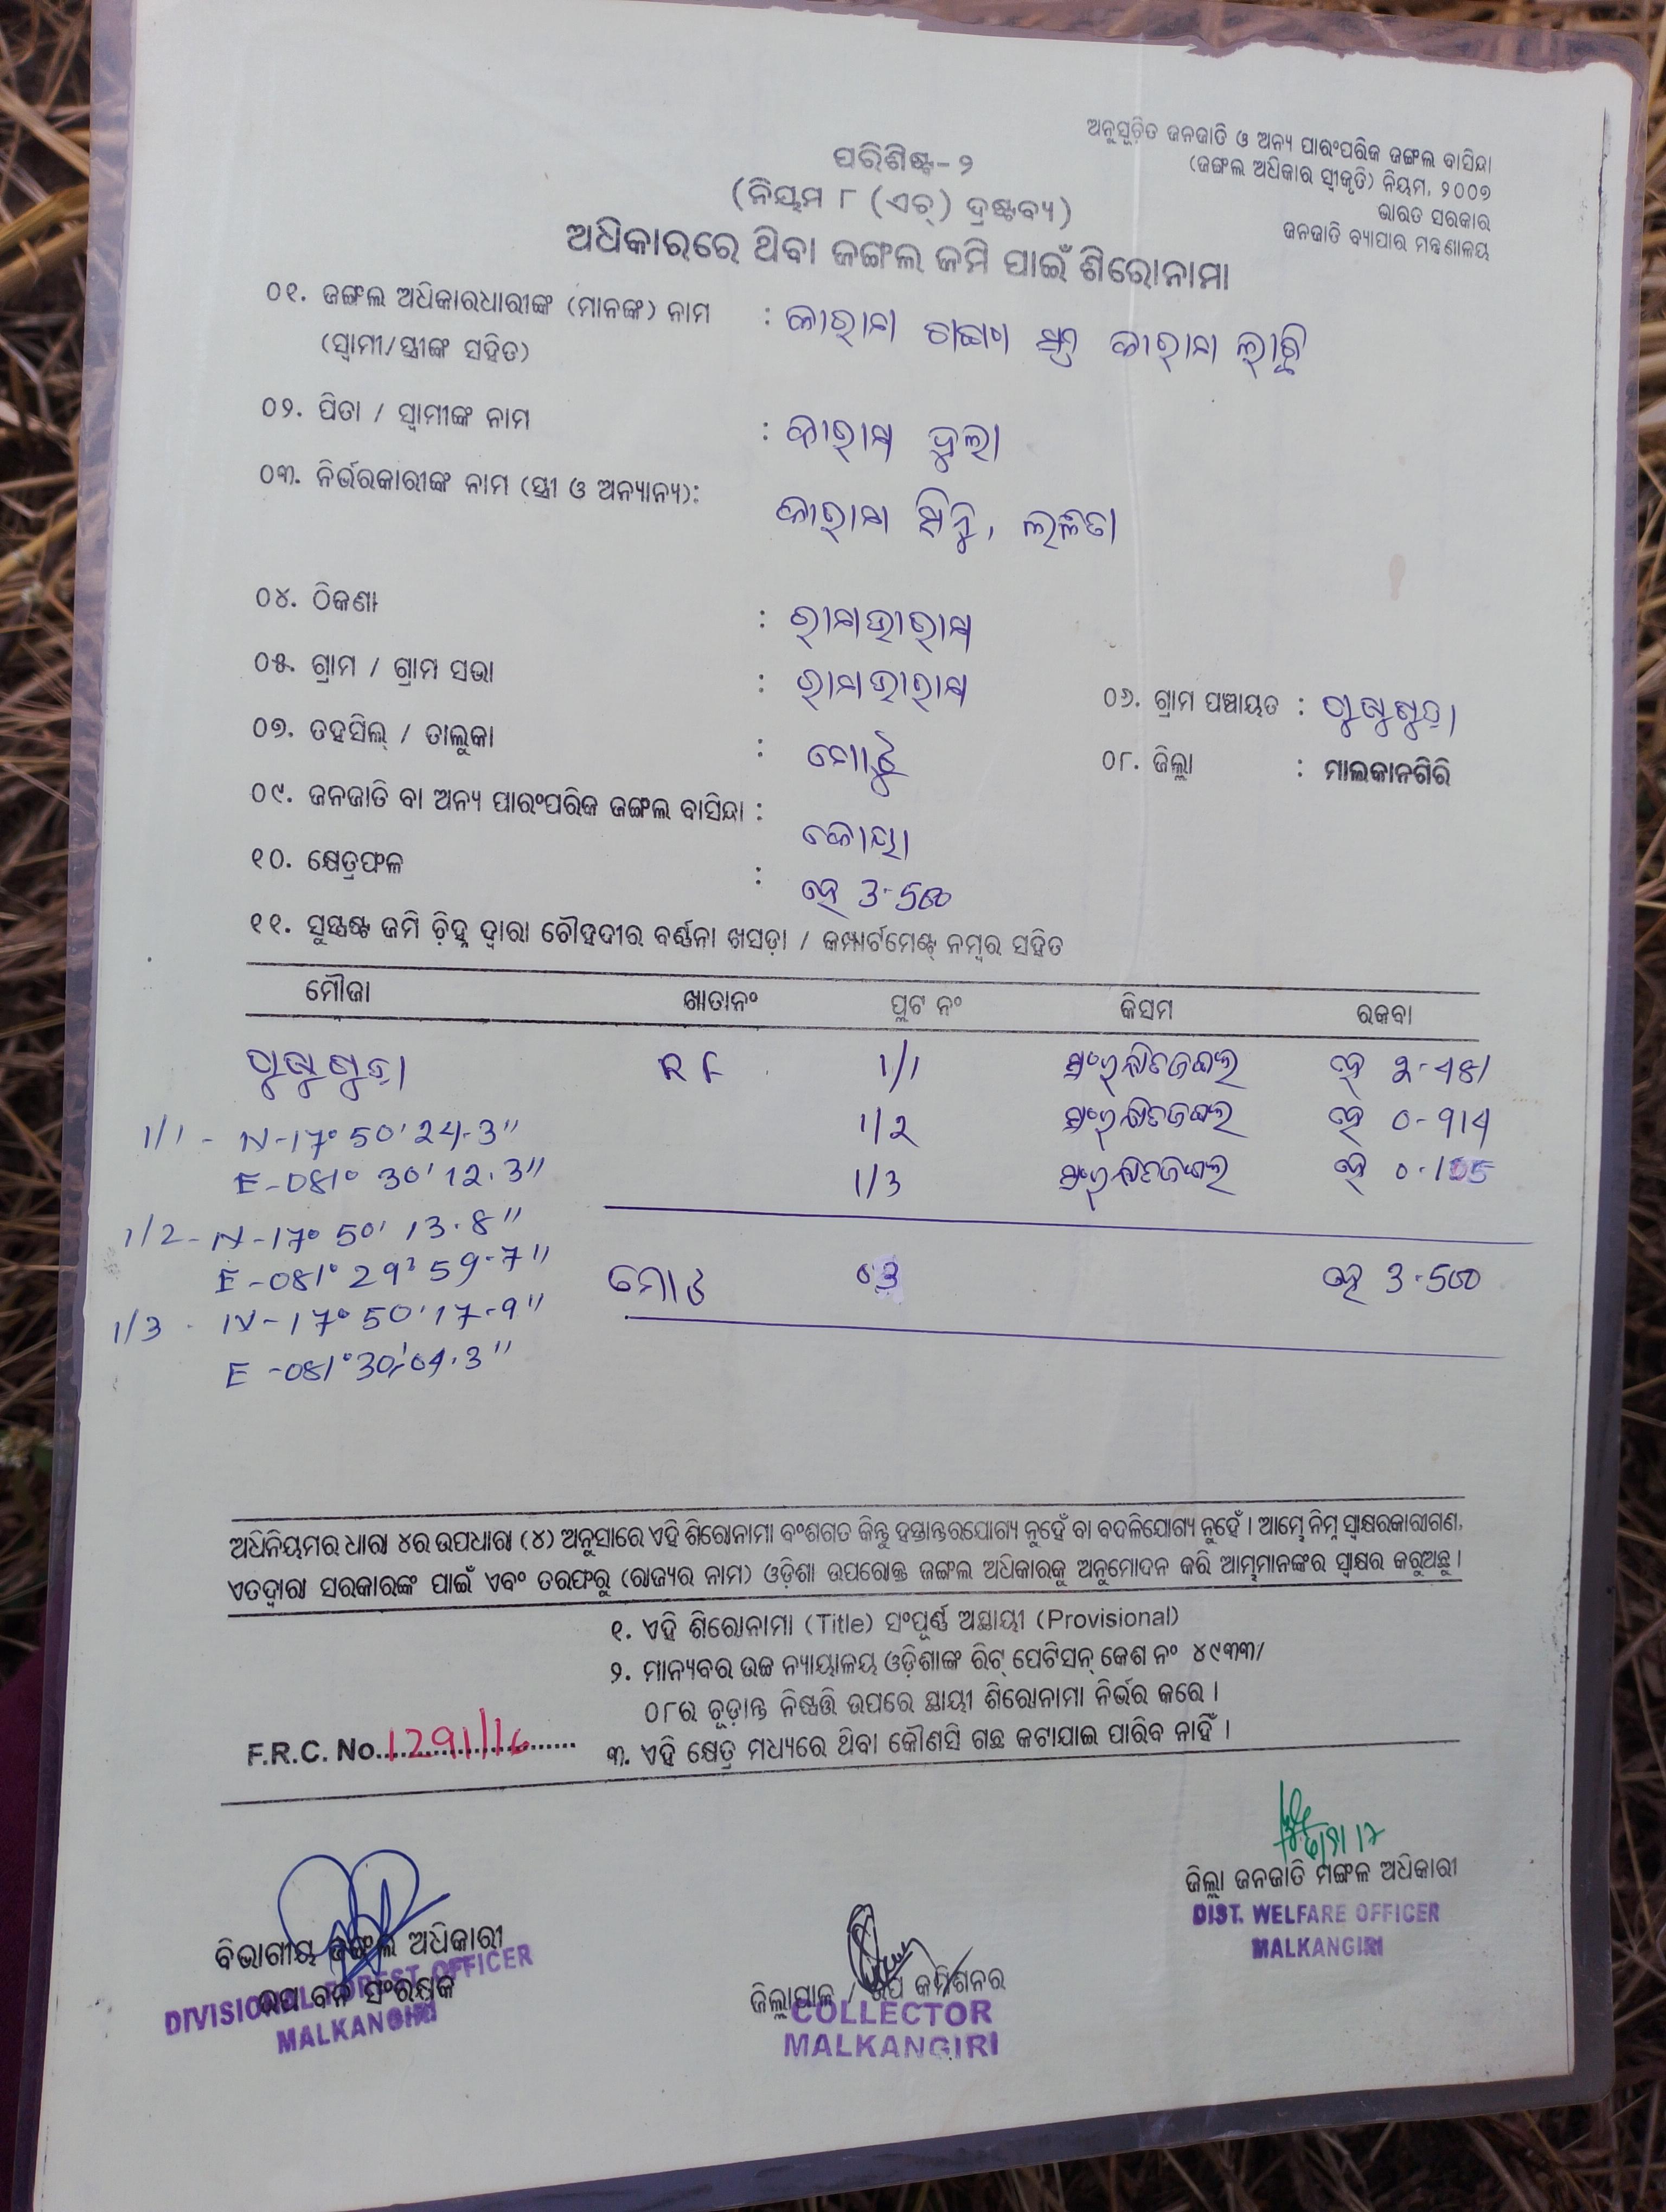 ଅନୁସୂଚିତ ଜନଜାତି ଓ ଅନ୍ୟ ପାରଂପରିକ ଜଙ୍ଗଲ ବାସିନ୍ଦା
(ଜଙ୍ଗଲ ଅଧିକାର ସ୍ୱୀକୃତି) ନିୟମ, ୨୦୦୭
ଭାରତ ସରକାର
ଜନଜାତି ବ୍ୟାପାର ମନ୍ତ୍ରଣାଳୟ
ପରିଶିଷ୍ଟ-୨
(ନିୟମ ୮ (ଏଚ୍) ଦ୍ରଷ୍ଟବ୍ୟ)
ଅଧିକାରରେ ଥିବା ଜଙ୍ଗଲ ଜମି ପାଇଁ ଶିରୋନାମା
୦୧. ଜଙ୍ଗଲ ଅଧିକାରଧାରୀଙ୍କ (ମାନଙ୍କ) ନାମ :
(ସ୍ୱାମୀ/ସ୍ତ୍ରୀଙ୍କ ସହିତ)
୦୨. ପିତା / ସ୍ୱାମୀଙ୍କ ନାମ :
୦୩. ନିର୍ଭରକାରୀଙ୍କ ନାମ (ସ୍ତ୍ରୀ ଓ ଅନ୍ୟାନ୍ୟ):
୦୪. ଠିକଣା :
୦୫. ଗ୍ରାମ / ଗ୍ରାମ ସଭା : ୦୬. ଗ୍ରାମ ପଞ୍ଚାୟତ :
୦୭. ତହସିଲ୍ / ତାଲୁକା : ୦୮. ଜିଲ୍ଲା : ମାଲକାନଗିରି
୦୯. ଜନଜାତି ବା ଅନ୍ୟ ପାରଂପରିକ ଜଙ୍ଗଲ ବାସିନ୍ଦା : କୋୟା
୧୦. କ୍ଷେତ୍ରଫଳ : ହେ 3-500
୧୧. ସୁସ୍ପଷ୍ଟ ଜମି ଚିହ୍ନ ଦ୍ୱାରା ଚୌହଦୀର ବର୍ଣ୍ଣନା ଖସଡ଼ା / କମ୍ପାର୍ଟମେଣ୍ଟ୍ ନମ୍ବର ସହିତ
ମୌଜା ଖାତାନଂ ପ୍ଲଟ ନଂ କିସମ ରକବା
RF 1/1 ସଂରକ୍ଷିତଜଙ୍ଗଲ ହେ 2-481
1/2 ସଂରକ୍ଷିତଜଙ୍ଗଲ ହେ 0-914
1/3 ସଂରକ୍ଷିତଜଙ୍ଗଲ ହେ 0-105
1/1 - N-17° 50' 24.3"
E-081° 30' 12.3"
1/2 - N-17° 50' 13.8"
E-081° 29' 59.7"
1/3 - N-17° 50' 17.9"
E-081° 30' 04.3"
ମୋଟ 03 ହେ 3-500
ଅଧିନିୟମର ଧାରା ୪ର ଉପଧାରା (୪) ଅନୁସାରେ ଏହି ଶିରୋନାମା ବଂଶଗତ କିନ୍ତୁ ହସ୍ତାନ୍ତରଯୋଗ୍ୟ ନୁହେଁ ବା ବଦଳିଯୋଗ୍ୟ ନୁହେଁ । ଆମ୍ଭେ ନିମ୍ନ ସ୍ୱାକ୍ଷରକାରୀଗଣ,
ଏତଦ୍ୱାରା ସରକାରଙ୍କ ପାଇଁ ଏବଂ ତରଫରୁ (ରାଜ୍ୟର ନାମ) ଓଡ଼ିଶା ଉପରୋକ୍ତ ଜଙ୍ଗଲ ଅଧିକାରକୁ ଅନୁମୋଦନ କରି ଆମ୍ଭମାନଙ୍କର ସ୍ୱାକ୍ଷର କରୁଅଛୁ ।
୧. ଏହି ଶିରୋନାମା (Title) ସଂପୂର୍ଣ୍ଣ ଅସ୍ଥାୟୀ (Provisional)
୨. ମାନ୍ୟବର ଉଚ୍ଚ ନ୍ୟାୟାଳୟ ଓଡ଼ିଶାଙ୍କ ରିଟ୍ ପେଟିସନ୍ କେଶ ନଂ ୪୯୩୩/
୦୮ର ଚୂଡ଼ାନ୍ତ ନିଷ୍ପତ୍ତି ଉପରେ ସ୍ଥାୟୀ ଶିରୋନାମା ନିର୍ଭର କରେ ।
୩. ଏହି କ୍ଷେତ୍ର ମଧ୍ୟରେ ଥିବା କୌଣସି ଗଛ କଟାଯାଇ ପାରିବ ନାହିଁ ।
F.R.C. No. 1291/16
ଜିଲ୍ଲା ଜନଜାତି ମଙ୍ଗଳ ଅଧିକାରୀ
DIST. WELFARE OFFICER
MALKANGIRI
ବିଭାଗୀୟ ଜଙ୍ଗଲ ଅଧିକାରୀ
ଉପ ବନ ସଂରକ୍ଷକ
DIVISIONAL FOREST OFFICER
MALKANGIRI
ଜିଲ୍ଲାପାଳ / ଉପ କମିଶନର
COLLECTOR
MALKANGIRI